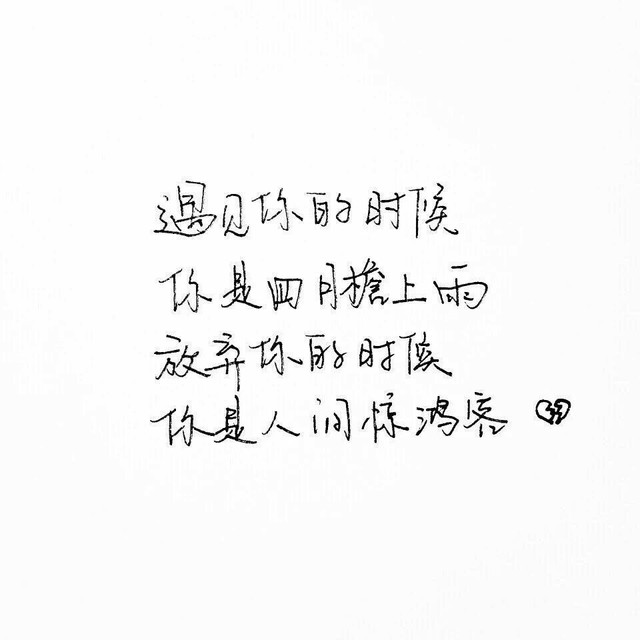 遇见你的时候
你是四月檐上雨
放弃你的时候
你是人间惊鸿客